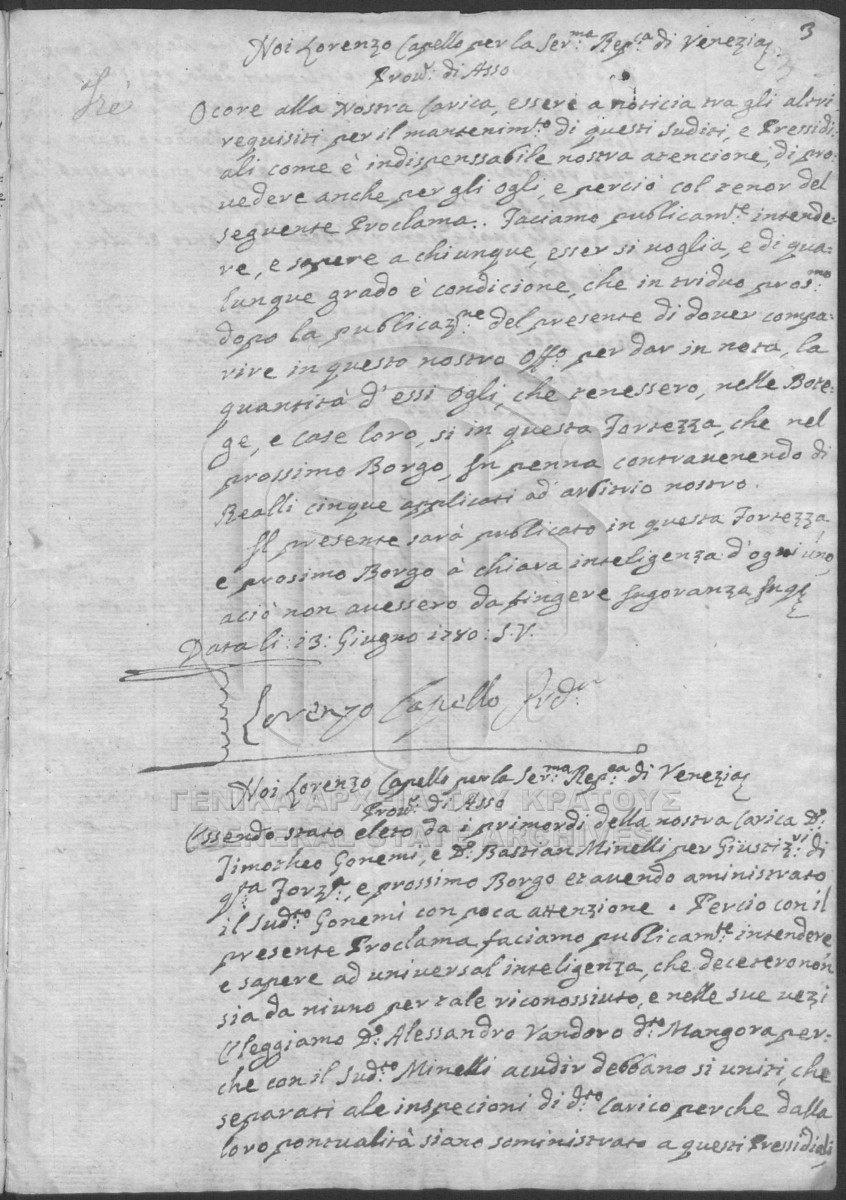 3
Noi Lorenzo Capello per la Ser:ma Rep:ca di Venezia
Prov:r di Asso
Tre
Ocore alla Nostra Carica, essere a noticia tra gli altri
requisiti per il mantenim:to di questi Suditi, e Pressidi-
ali come è indispenssabile nostra atencione, di pro-
vedere anche per gli ogli, e perciò col tenor del
seguente Proclama.. Faciamo publicam:te intende-
re, e sapere a chiunque, esser si voglia, e di qua-
lunque grado è condicione, che in triduo pros:mo
dopo la publicaz:ne del presente di dover compa-
rire in questo nostro Off:o per dar in nota, la
quantità d'essi ogli, che tenessero, nelle Bote-
ge, e case loro, si in questa Fortezza, che nel
prossimo Borgo, In penna contravenendo di
Realli cinque applicati ad arbitrio nostro.
Il presente sarà publicato in questa Fortezza
e prosimo Borgo à chiara inteligenza d'ogni uno,
aciò non avessero da fingere Ingoranza
Data li: 13: Giugno 1780: S.V.
Lorenzo Capello
Noi Lorenzo Capello per la Ser:ma Rep:ca di Venezia
Prov:r di Asso
ΓΕΝΙΚΑ ΑΡΧΕΙΑ ΤΟΥ ΚΡΑΤΟΥΣ
GENERAL STATE ARCHIVES
Essendo stato eleto da i primordi della nostra Carica D:o
Timotheo Gonemi, e D:o Bastian Minelli per Giustiz:ri di
q:ta Forz:a, e prossimo Borgo et avendo aministrato
il Sud:to Gonemi con poca attenzione. Percio con il
presente Proclama faciamo publicam:te intendere
e sapere ad universal inteligenza, che decetero non
sia da niuno per tale riconossiuto, e nelle sue vezi
Eleggiamo D:o Alessandro Vandoro d:to Mangora per-
che con il Sud:to Minelli acudir debbano si uniti, che
separati ale inspecioni di d:to Carico perche dalla
loro pontualità siano soministrato a questi Pressidiali